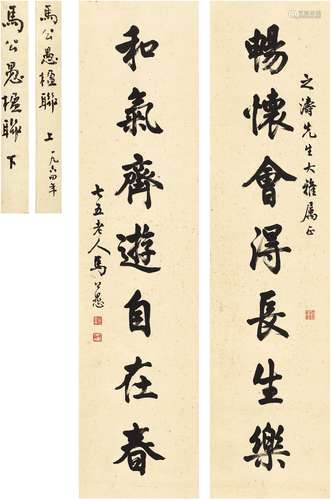 之濤先生大雅属正
暢懷會得長生樂
和氣齊遊自在春
七五老人馬公愚
馬公愚楹聯 上 一九六四年
馬公愚楹聯 下